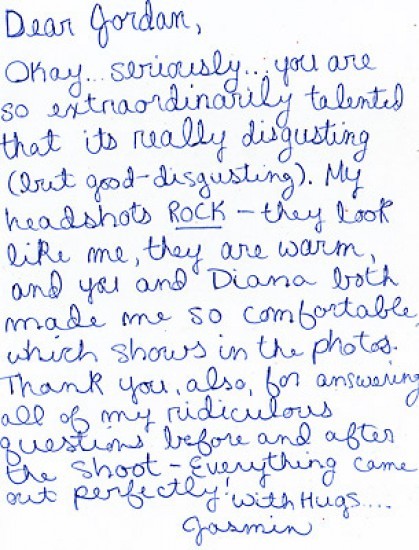 Dear Jordan,
Okay... seriously... you are
so extraordinarily talented
that its really disgusting
(but good-disgusting). My
headshots ROCK - they look
like me, they are warm,
and you and Diana both
made me so comfortable,
which shows in the photos.
Thank you, also, for answering
all of my ridiculous
questions before and after
the shoot - Everything came
out perfectly! With Hugs....
Jasmin